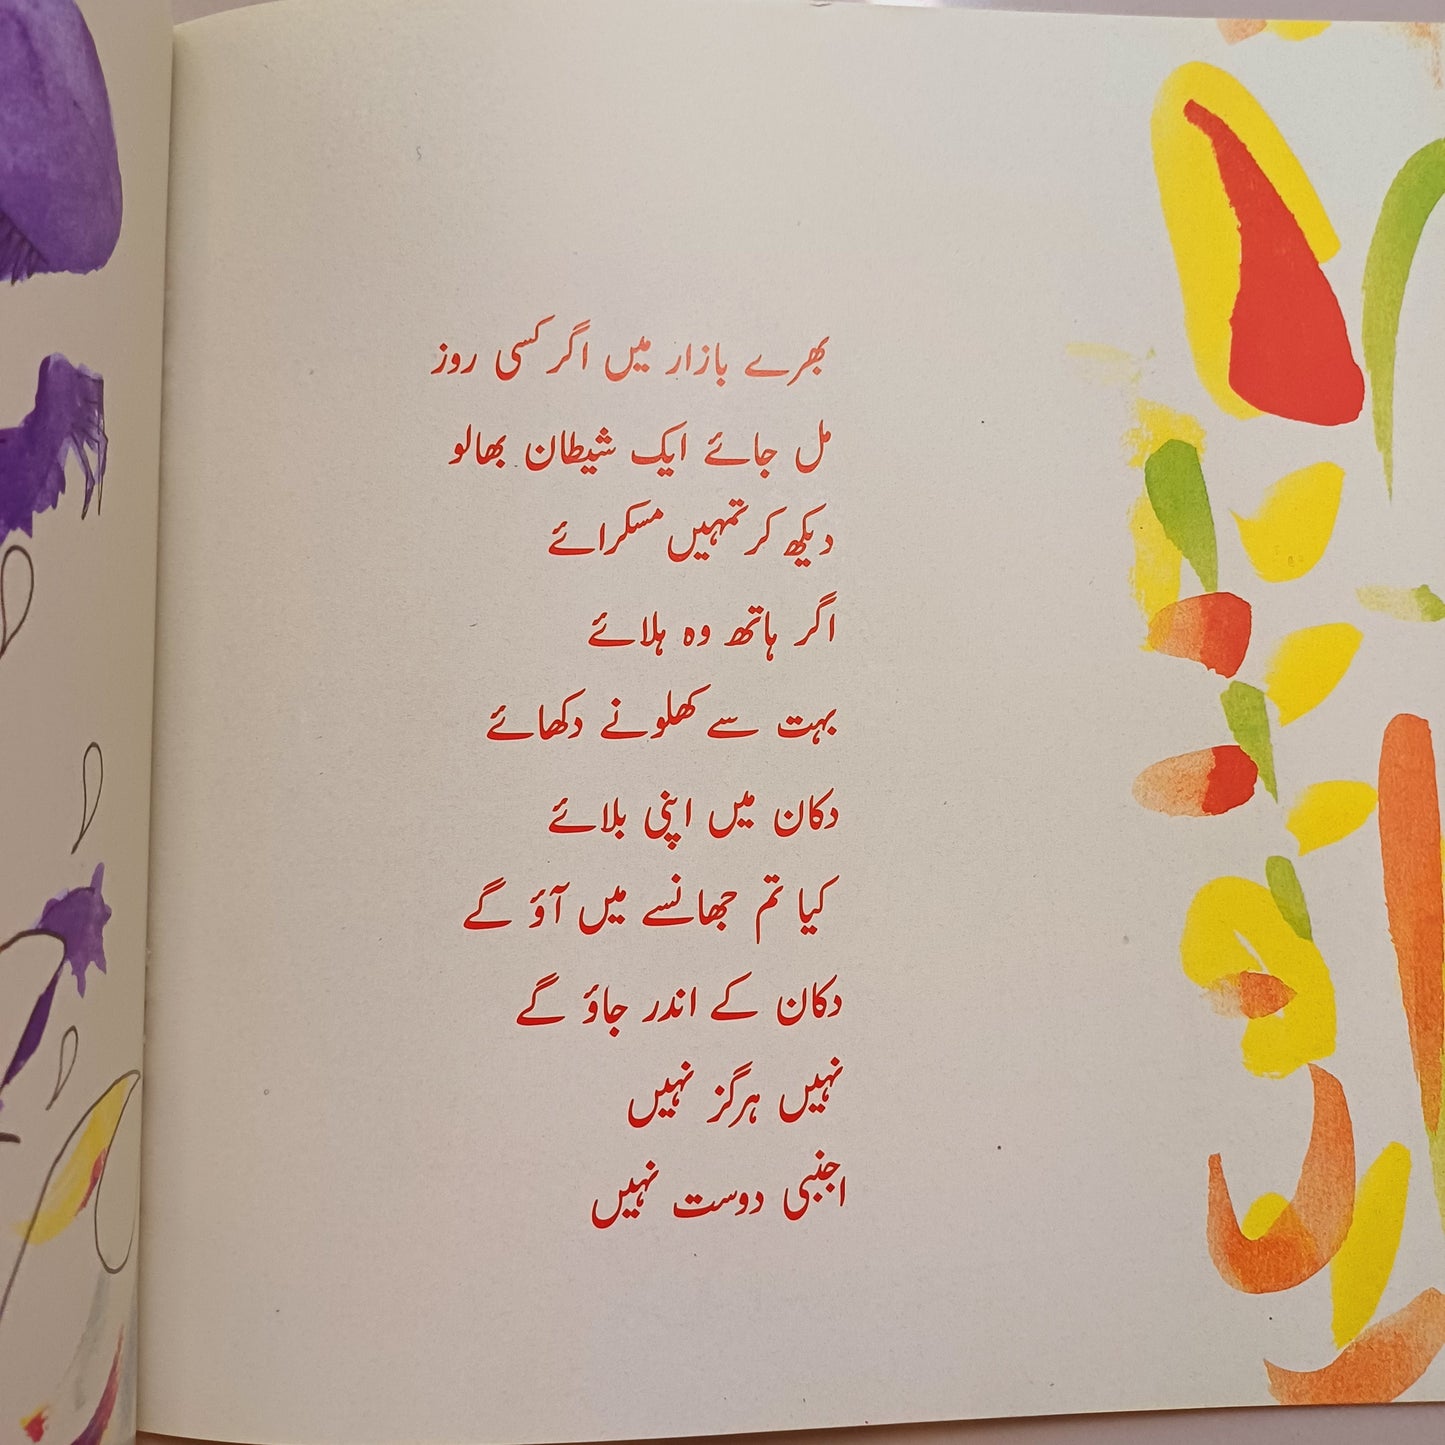 بھرے بازار میں اگر کسی روز
مل جائے ایک شیطان بھالو
دیکھ کر تمہیں مسکرائے
اگر ہاتھ وہ ہلائے
بہت سے کھلونے دکھائے
دکان میں اپنی بلائے
کیا تم جھانسے میں آؤ گے
دکان کے اندر جاؤ گے
نہیں ہرگز نہیں
اجنبی دوست نہیں